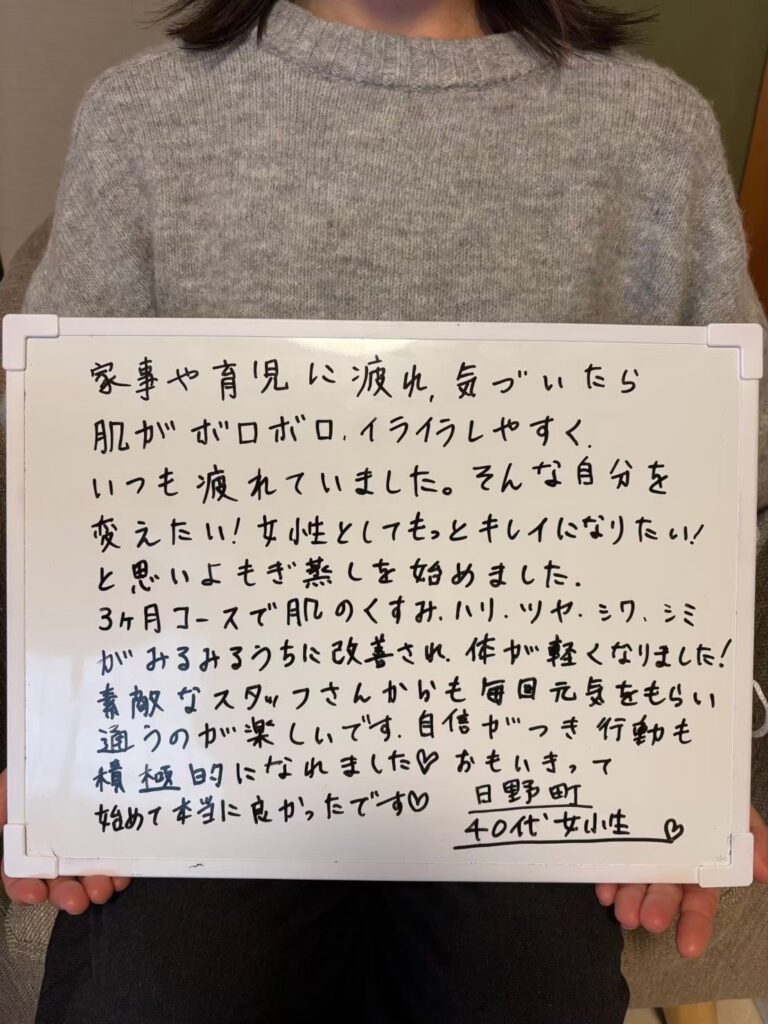 家事や育児に疲れ、気づいたら
肌がボロボロ、イライラしやすく、
いつも疲れていました。そんな自分を
変えたい!女性としてもっとキレイになりたい!
と思いよもぎ蒸しを始めました。
3ヶ月コースで肌のくすみ、ハリ、ツヤ、シワ、シミ
がみるみるうちに改善され、体が軽くなりました!
素敵なスタッフさんからも毎回元気をもらい
通うのが楽しいです。自信がつき行動も
積極的になれました♡ おもいきって
始めて本当に良かったです♡
日野町
40代女性 ♡